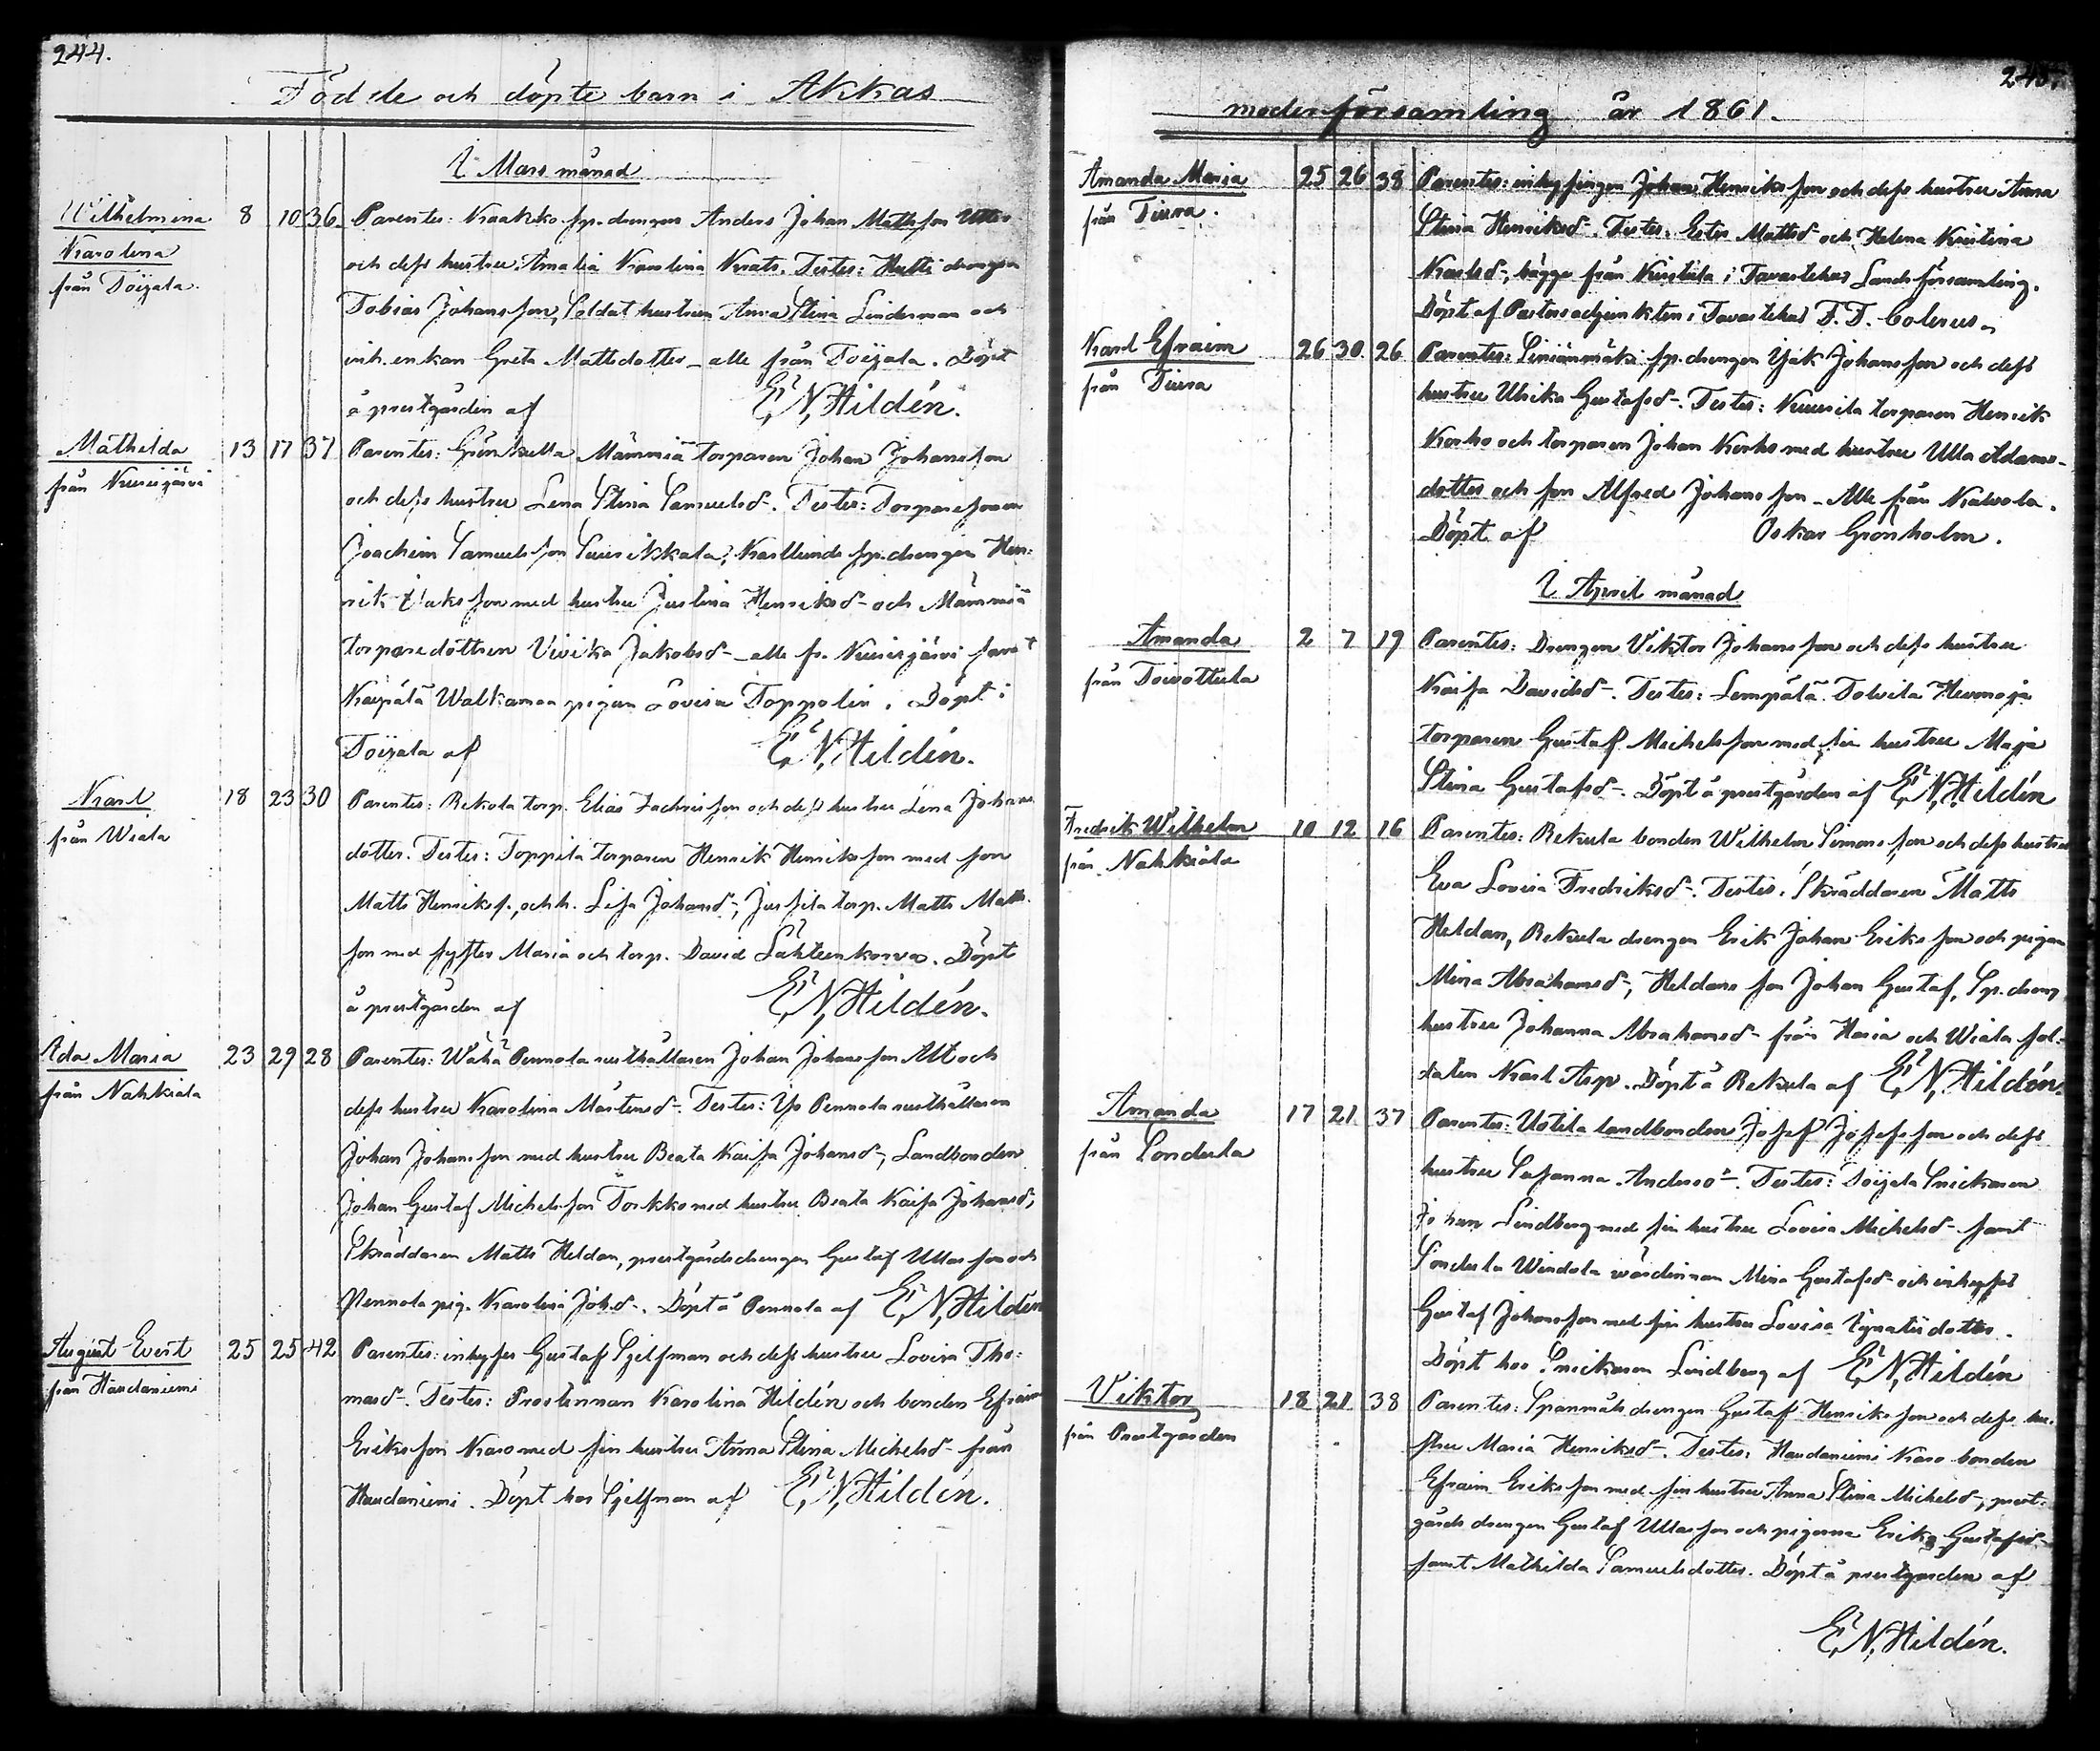 244.
Födde och döpte barn i Akkas
I Mars månad
Wilhelmina 8 10 36. Parentes: Kraakko sp. drengen Anders Johan Mattsson
Karolina
från Toijala.
och dess hustru Amalia Karolina Testes: Hutti drengen
Tobias Johansson, Soldat hustrun Anna Stina Linderman och
inh. enkan Greta Mattsdotter _ alle från Toijala. Döpt
å prestgården af E. N. Hildén.
Mathilda 13 17 37 Parentes: Grönkulla Mämmiä torparen Johan Johansson
från Kuurisjärvi
och dess hustru Lena Stina Samuelsd-. Testes: Torparesonen
Joachim Samuelsson Kaslunds sp. drengen Hen=
rik Isaksson med hustru Justina Henriksd- och Mämmiä
torparedottren Vivika Jakobsd- _ alle fr. Kuurisjärvi samt
Walkaman pigan Lovisa Toppolin. Döpt i
Toijala af E. N. Hildén.
Karl 18 23 30 Parentes: Rekola torp. Elias Zachrisson och dess hustru Lena Johans
från Wiala
dotter. Testes: Toppila torparen Henrik Henriksson med son
Matts Henrikss., och h. Lisa Johansd-, Jussila torp. Matts Matts
son med syster Maria och torp. David Lähteenkorva. Döpt
å prestgården af E. N. Hildén.
Ida Maria 23 29 28 Parentes: Wähä Pennola rusthållaren Johan Johansson Alt och
från Nahkiala
dess hustru Karolina Mårtensd-. Testes: Iso Pennola rusthållaren
Johan Johansson med hustru Beata Kaisa Johansd-, Landbonden
Johan Gustaf Michelsson Torkko med hustru Beata Kaisa Johansd-,
Skräddaren Matts Heldan, prestgårdsdrengen Gustaf Ullasson och
Pennola pig. Karolina Johsd-. Döpt å Pennola af E. N. Hildén
August Evert 25 25 42 Parentes: inhyses Gustaf Sjelfman och dess hustru Lovisa Tho=
från Haudaniemi
masd-. Testes: Prostinnan Karolina Hildén och bonden Efraim
Eriksson Karo med sin hustru Anna Stina Michelsd- från
Haudaniemi. Döpt hos Sjelfman af E. N. Hildén.
245.
moderförsamling år 1861.
Amanda Maria 25 26 38 Parentes: inhysingen Johan Henriksson och dess hustru Anna
från Tiura.
Stina Henriksd-. Testes: Ester Mattsd- och Helena Kristina
Karlsd-, bägge från i Tavastehus Landsförsamling.
Döpt af Pastorsadjunkten i Tavastehus F. T. Colerus.
Karl Efraim 26 30 26 Parentes: Liniänmäki sp. drengen Isak Johansson och dess
från Tiura
hustru Ulrika Gustafsd-. Testes: Kuurila torparen Henrik
Korho och torparen Johan Korho med hustru Ulla Adams-
dotter och son Alfred Johansson _ Alle från Kalvola.
Döpt af Oskar Grönholm.
I April månad
Amanda 2 7 19 Parentes: Drengen Viktor Johansson och dess hustru
från Toivottula
Kaisa Davidsd-. Testes: Lempälä Tolvila Heumoja
torparen Gustaf Michelsson med sin hustru Maja
Stina Gustafsd-. Döpt å prestgården af E. N. Hildén
Fredrik Wilhelm 10 12 16 Parentes: Rekula bonden Wilhelm Simonsson och dess hustru
från Nahkiala
Eva Lovisa Fredriksd-. Testes: Skräddaren Matts
Heldan, Rekula drengen Erik Johan Eriksson och pigan
Mina Abrahamsd-, Heldans son Johan Gustaf, Sp. dreng
hustru Johanna Abrahamsd- från Haria och Wiala sol=
daten Karl Asp. Döpt å Rekula af E. N. Hildén.
Amanda 17 21 37 Parentes: Uotila landbonden Josef Josefsson och dess
från Sonderla
hustru Susanna Andersd-. Testes: Toijala Snickaren
Johan Lindberg med sin hustru Lovisa Michelsd- samt
Sonderla Windola värdinnan Mina Gustafsd- och inhyses
Gustaf Johansson med sin hustru Lovisa Ignatiidotter.
Döpt hos Snickaren Lindberg af E. N. Hildén
Viktor 18 21 38 Parentes: Spannmåls drengen Gustaf Henriksson och dess hu=
från Prestgården
stru Maria Henriksd-. Testes: Haudaniemi Karo bonden
Efraim Eriksson med sin hustru Anna Stina Michelsd-, prest=
gårds drengen Gustaf Ullasson och pigorna Erika Gustafsd-
samt Mathilda Samuelsdotter. Döpt å prestgården af
E. N. Hildén.